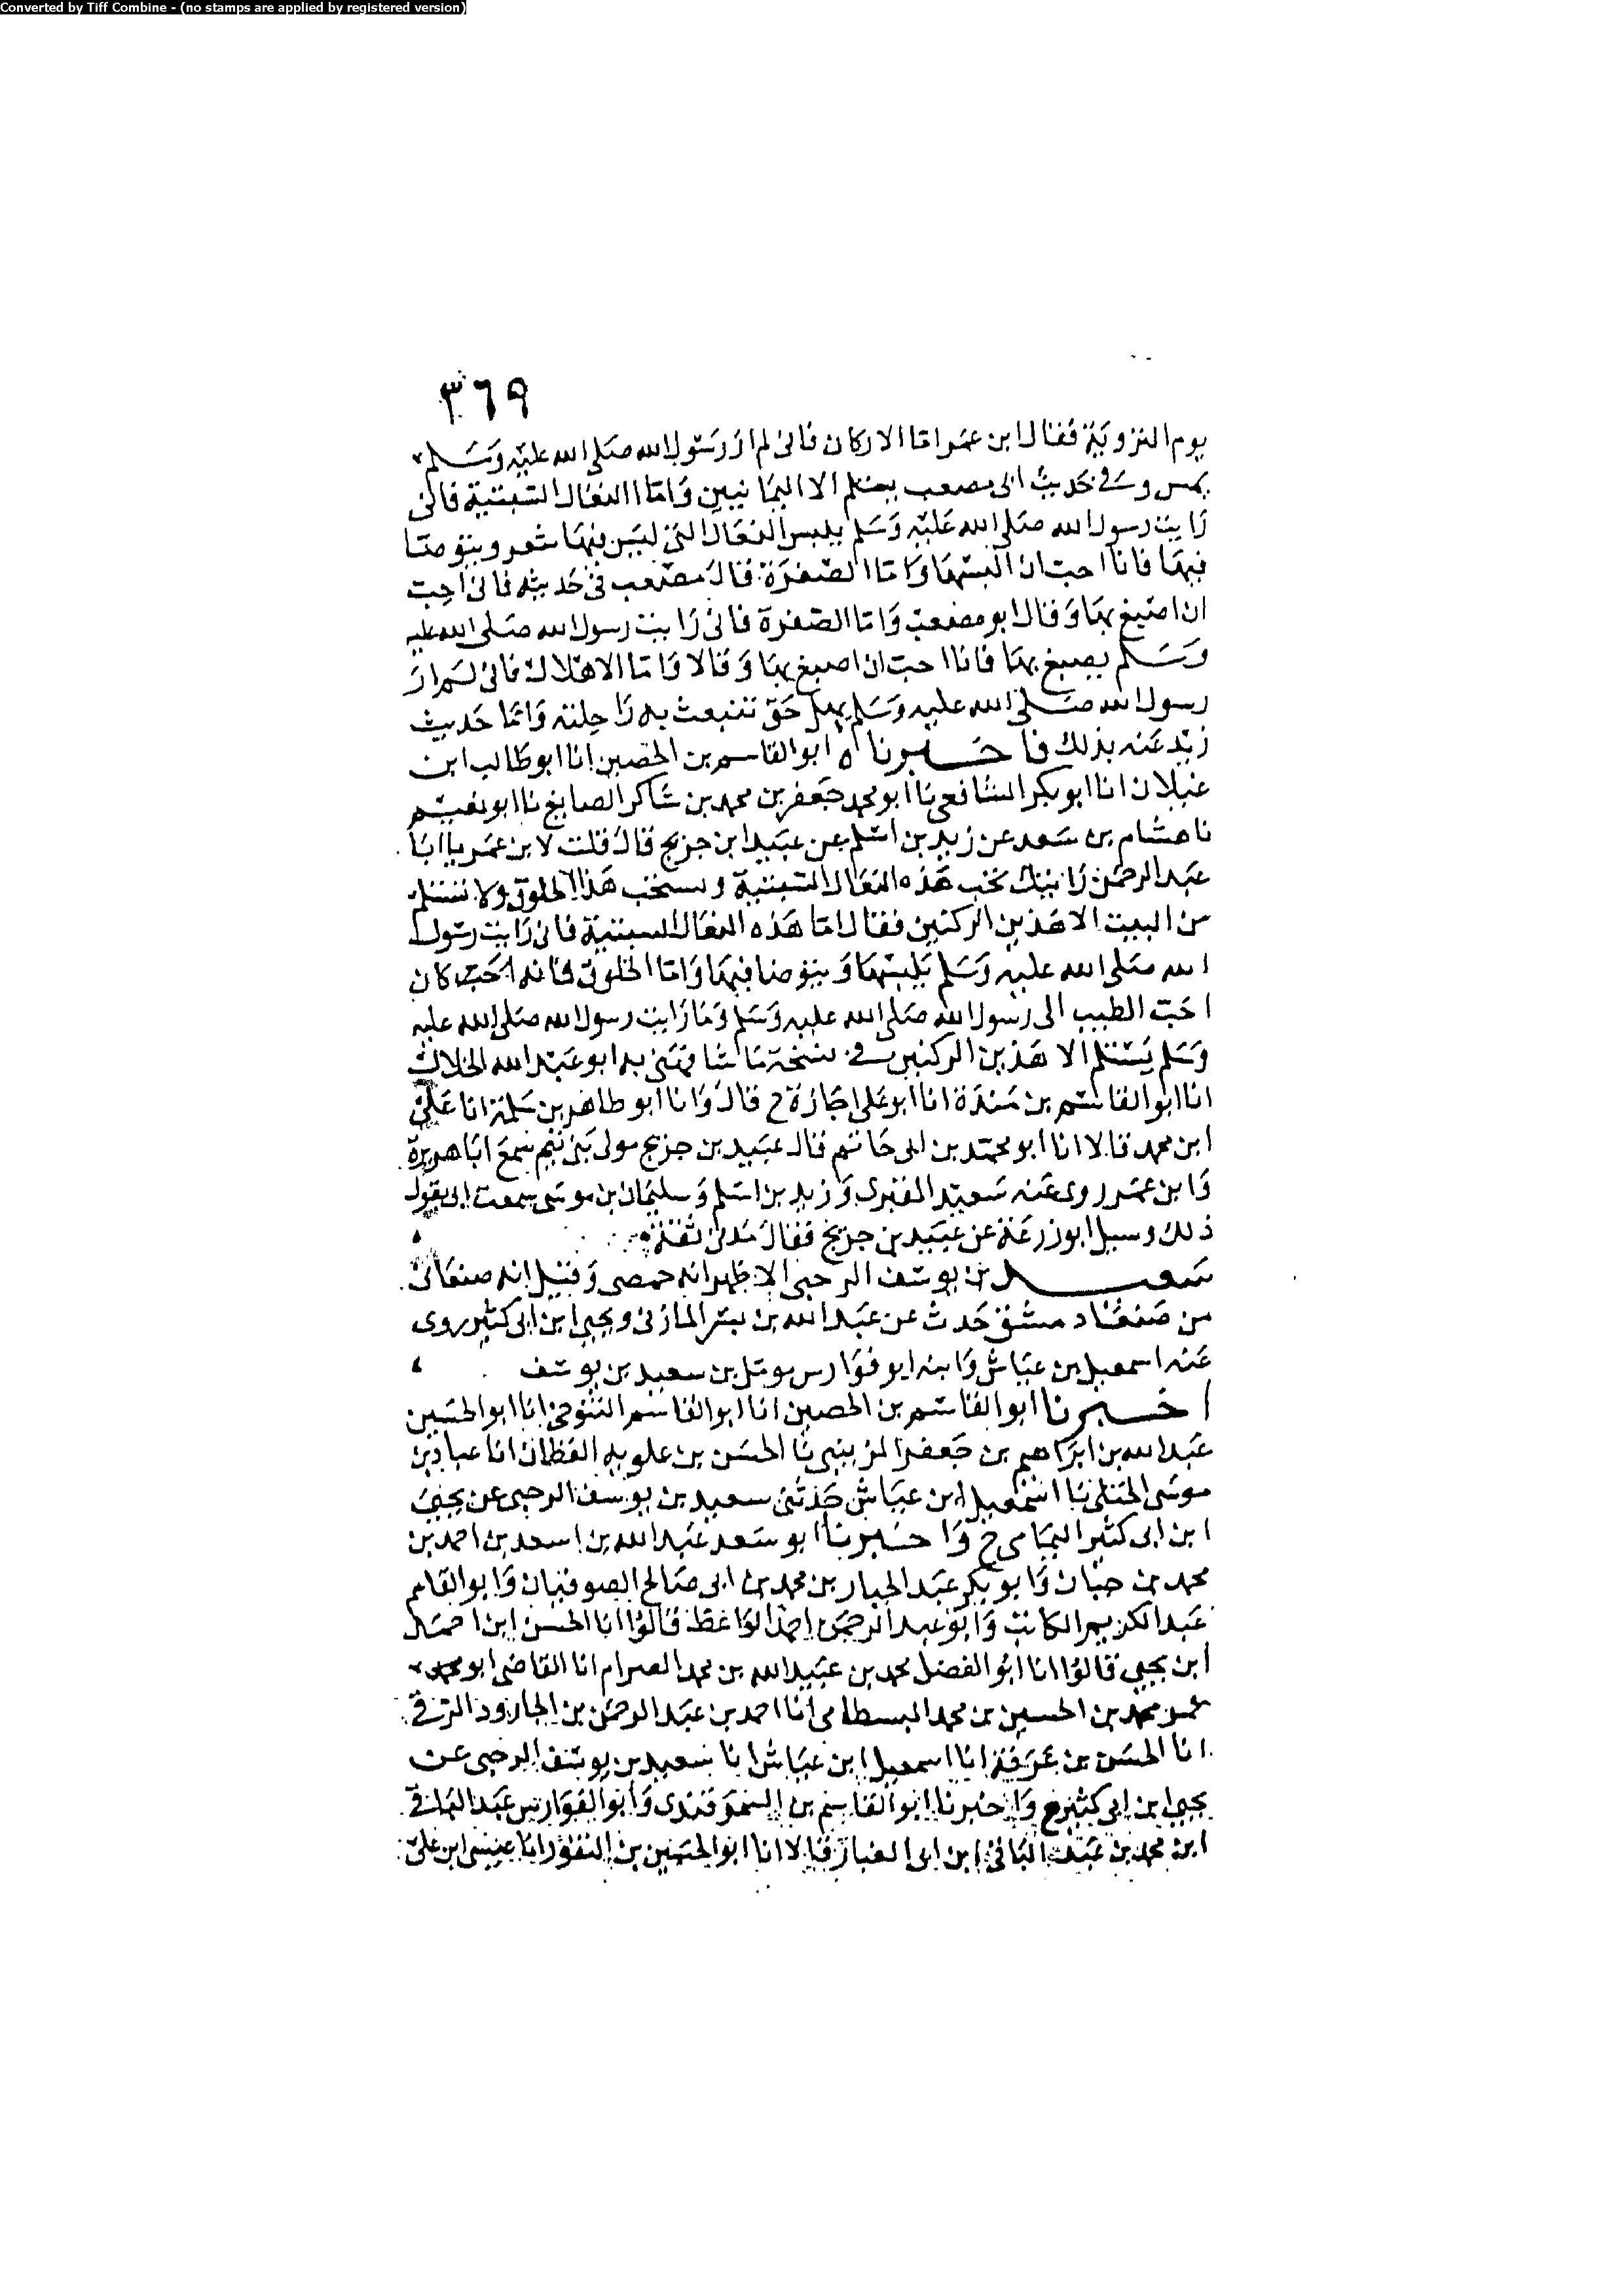 Converted by Tiff Combine - (no stamps are applied by registered version)
٣٦٩
يوم التروية فقال ابن عمر اما الاركان فانى لم ار رسول الله صلى الله عليه وسلم
يمس وفى حديث ابى مصعب يستلم الا اليمانيين واما النعال السبتية فانى
رايت رسول الله صلى الله عليه وسلم يلبس النعال التى ليس فيها شعر ويتوضا
فيها فانا احب ان البسها واما الصفرة قال مصعب فى حديثه فانى احب
ان اصبغ بها وقال ابو مصعب واما الصفرة فانى رايت رسول الله صلى الله عليه
وسلم يصبغ بها فانا احب ان اصبغ بها وقالا واما الاهلال فانى لم ار
رسول الله صلى الله عليه وسلم يهل حتى تنبعث به راحلته واما حديث
زيد عنه بذلك فاخبرناه ابو القاسم بن الحصين انا ابو طالب ابن
غيلان انا ابو بكر الشافعى نا ابو محمد جعفر بن محمد بن شاكر الصايغ نا ابو نعيم
نا هشام بن سعد عن زيد بن اسلم عن عبيد ابن جريج قال قلت لابن عمر يا ابا
عبد الرحمن رايتك تحب هذه النعال السبتية وتستحب هذا الخلوق ولا تستلم
من البيت الا هذين الركنين فقال اما هذه النعال السبتية فانى رايت رسول
الله صلى الله عليه وسلم يلبسها ويتوضا فيها واما الخلوق فانه احب كان
احب الطيب الى رسول الله صلى الله عليه وسلم وما رايت رسول الله صلى الله عليه
وسلم يستلم الا هذين الركنين فى نسخة ما شافهنى به ابو عبد الله الخلال
انا ابو القاسم بن مندة انا ابو على اجازة ح قال وانا ابو طاهر بن سلمة انا على
ابن محمد قالا انا ابو محمد بن ابى حاتم قال عبيد بن جريج مولى بنى تيم سمع ابا هريرة
وابن عمر روى عنه سعيد المقبرى وزيد بن اسلم وسليمان بن موسى سمعت ابى يقول
ذلك وسيل ابو زرعة عن عبيد بن جريج فقال مدنى ثقة
سعيد بن يوسف الرحبى الاظهر انه حمصى وقيل انه صنعانى
من صنعاء دمشق حدث عن عبد الله بن بسر المازنى ويحيى ابن ابى كثير روى
عنه اسمعيل بن عياش وابنه ابو فوارس بن سعيد بن يوسف
اخبرنا ابو القاسم بن الحصين انا ابو القاسم التنوخى انا ابو الحسين
عبد الله بن ابراهيم بن جعفر الزينبى نا الحسن بن علويه القطان انا عباد بن
موسى الختلى نا اسمعيل ابن عياش حدثنى سعيد بن يوسف الرحبى عن يحيى
ابن ابى كثير اليمامى ح واخبرنا ابو سعد عبد الله بن اسعد بن احمد بن
محمد بن حيان وابو بكر عبد الجبار بن محمد بن ابى صالح الصوفيان وابو القاسم
عبد الكريم الكاتب وابو عبد الرحمن احمد الواعظ قالوا انا الحسن ابن احمد
ابن يحيى قالوا انا ابو الفضل محمد بن عبيد الله بن محمد الصرام انا القاضى ابو محمد
عمر محمد بن الحسين بن محمد البسطامى انا احمد بن عبد الرحمن بن الجارود الرقى
انا الحسن بن عرفة انا اسمعيل ابن عياش انا سعيد بن يوسف الرحبى عن
يحيى ابن ابى كثير ح واخبرنا ابو القاسم بن السمرقندى وابو الفوارس عبد الباقى
ابن محمد بن عبد الباقى ابن ابى الغبار قالا انا ابو الحسين بن النقور انا عيسى ابن على